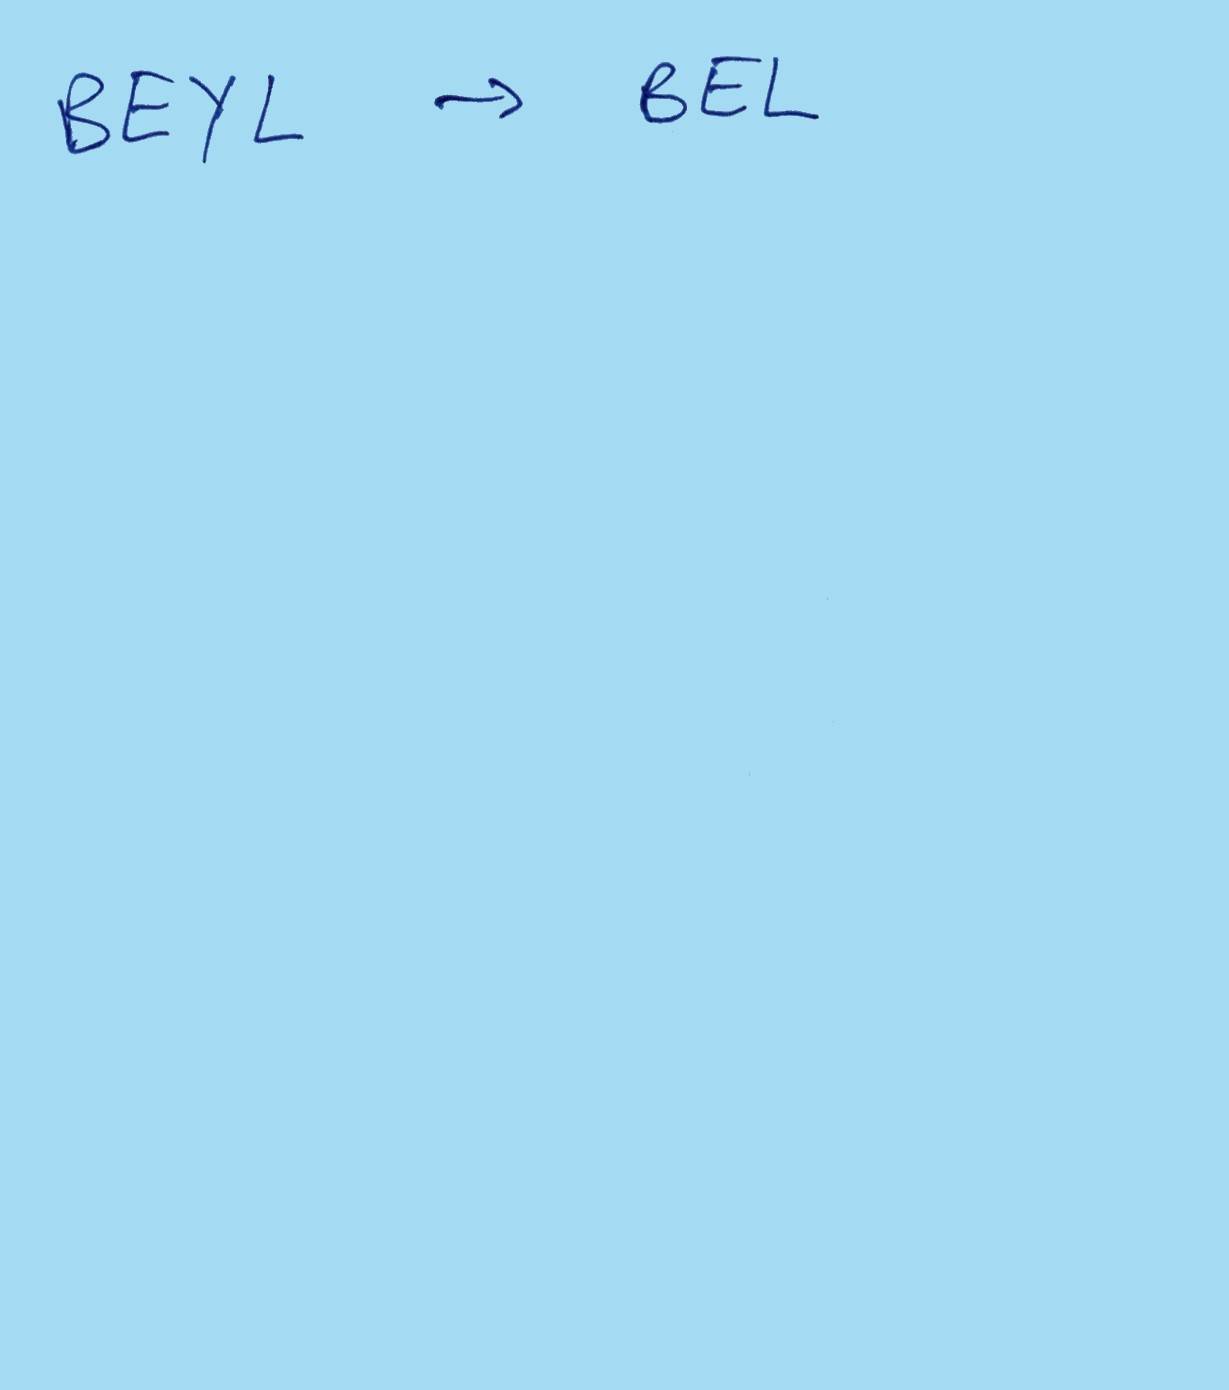 BEYL → BEL